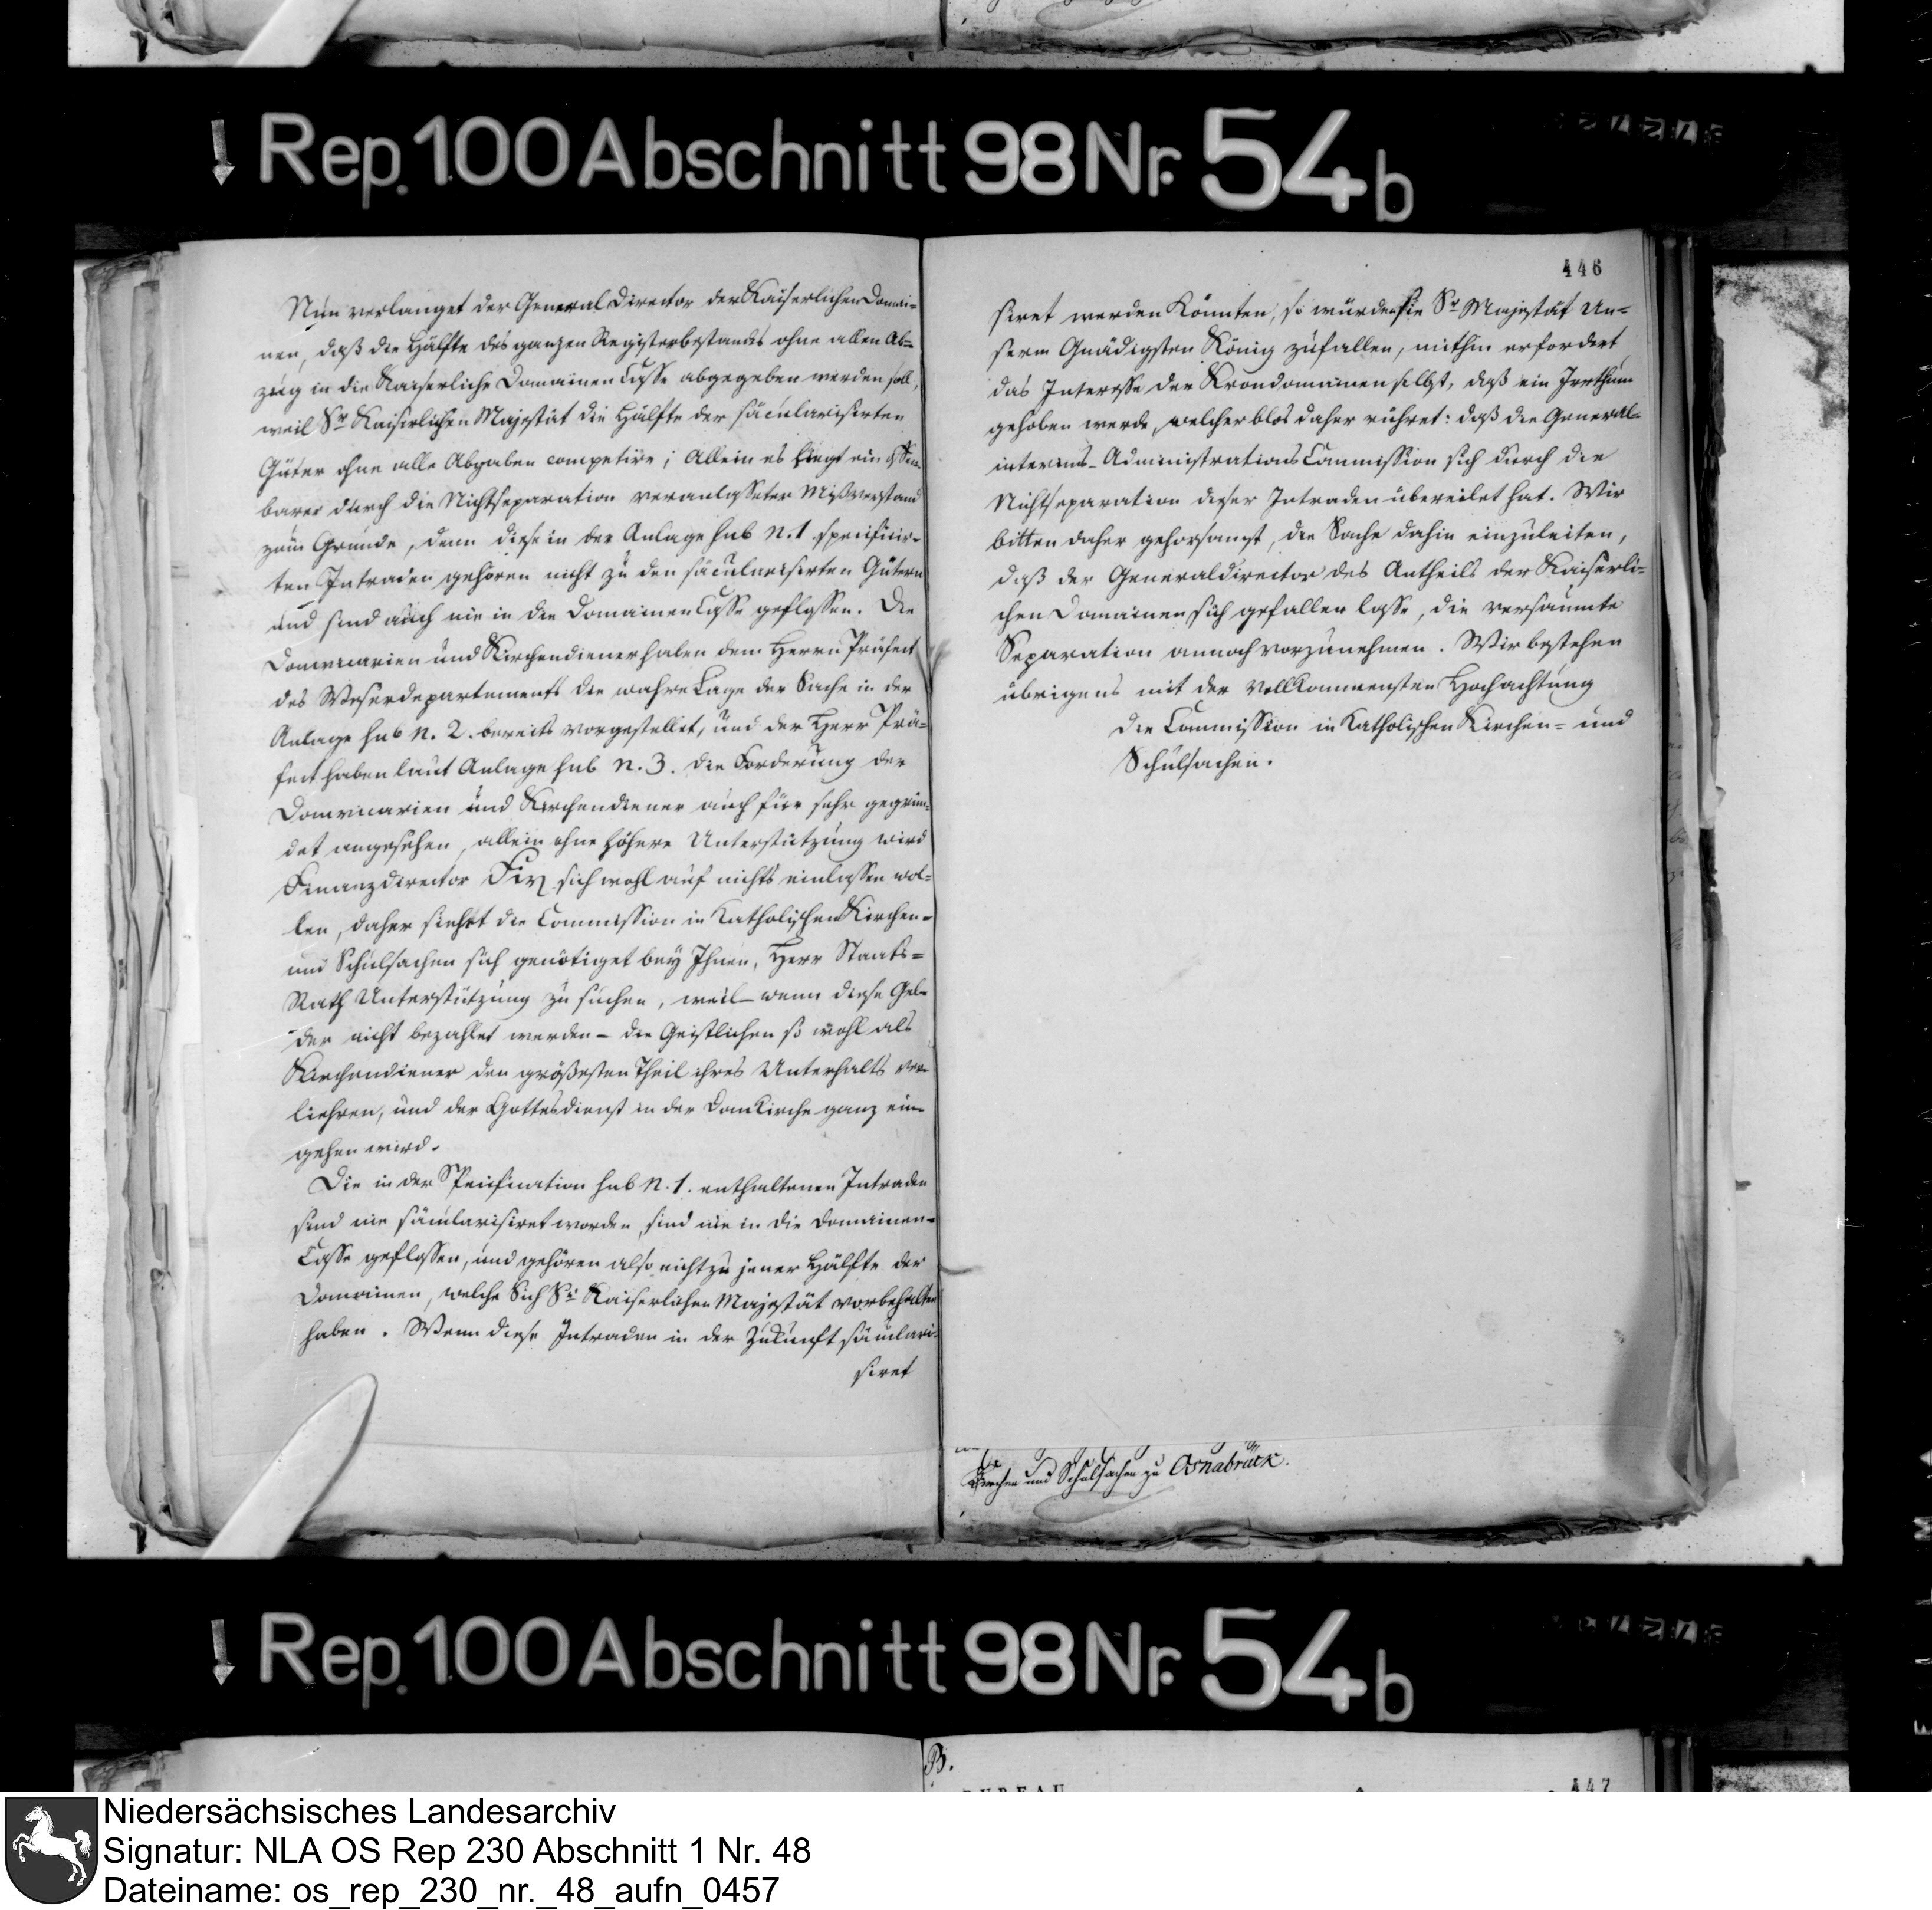 Rep. 100 Abschnitt 98 Nr. 54b
Nun verlanget der General Director der Kaiserlichen Domai-
nen, daß die Hälfte des ganzen Registerbestands ohne allen Ab-
zug in die Kaiserliche Domainen Casse abgegeben werden soll,
weil Sr Kaiserlichen Majestät die Hälfte der säcularisirten
Güter ohne alle Abgaben competire; Allein es liegt ein offen-
barer durch die Nichtseparation veranlasseter Mißverstand
zum Grunde, denn diese in der Anlage sub N. 1 specificir-
ten Intraden gehören nicht zu den säcularisirten Gütern
und sind auch nie in die Domainen Casse geflossen. Die
Domvicarien und Kirchendiener haben dem Herrn Präfect
des Weserdepartements die wahre Lage der Sache in der
Anlage sub N. 2. bereits vorgestellet, und der Herr Prä-
fect haben laut Anlage sub N. 3. die Forderung der
Domvicarien und Kirchendiener auch für sehr gegrün-
det angesehen, allein ohne höhere Unterstützung wird
Finanzdirector sich wohl auf nichts einlassen wol-
len, daher siehet die Commission in Katholischen Kirchen-
und Schulsachen sich genötiget bey Ihnen, Herr Staats-
Rath Unterstützung zu suchen, weil - wenn diese Gel-
der nicht bezahlet werden - die Geistlichen so wohl als
Kirchendiener den größesten Theil ihres Unterhalts ver-
liehren, und der Gottesdienst in der Domkirche ganz ein-
gehen wird.
Die in der Specification sub N. 1. enthaltenen Intraden
sind nie säcularisiret worden, sind nie in die Domainen-
Casse geflossen, und gehören also nicht zu jener Hälfte der
Domainen, welche Sich Se Kaiserlichen Majestät vorbehalten
haben. Wenn diese Intraden in der Zukunft säculari-
siret
446
siret werden könnten, so würden sie Sr Majestät Un-
serm Gnädigsten König zufallen, mithin erfordert
das Interesse der Krondomainen selbst, daß ein Irrthum
gehoben werde, welcher blos daher rühret: daß die General-
interims-Administrations Commission sich durch die
Nichtseparation dieser Intraden übereilet hat. Wir
bitten daher gehorsamst, die Sache dahin einzuleiten,
daß der Generaldirector des Antheils der Kaiserli-
chen Domainen sich gefallen lasse, die versäumte
Separation annoch vorzunehmen. Wir bestehen
übrigens mit der vollkommensten Hochachtung
Die Commission in Katholischen Kirchen- und
Schulsachen.
Kirchen und Schulsachen zu Osnabrück.
Rep. 100 Abschnitt 98 Nr. 54b
B.
BUREAU
447
Niedersächsisches Landesarchiv
Signatur: NLA OS Rep 230 Abschnitt 1 Nr. 48
Dateiname: os_rep_230_nr._48_aufn_0457